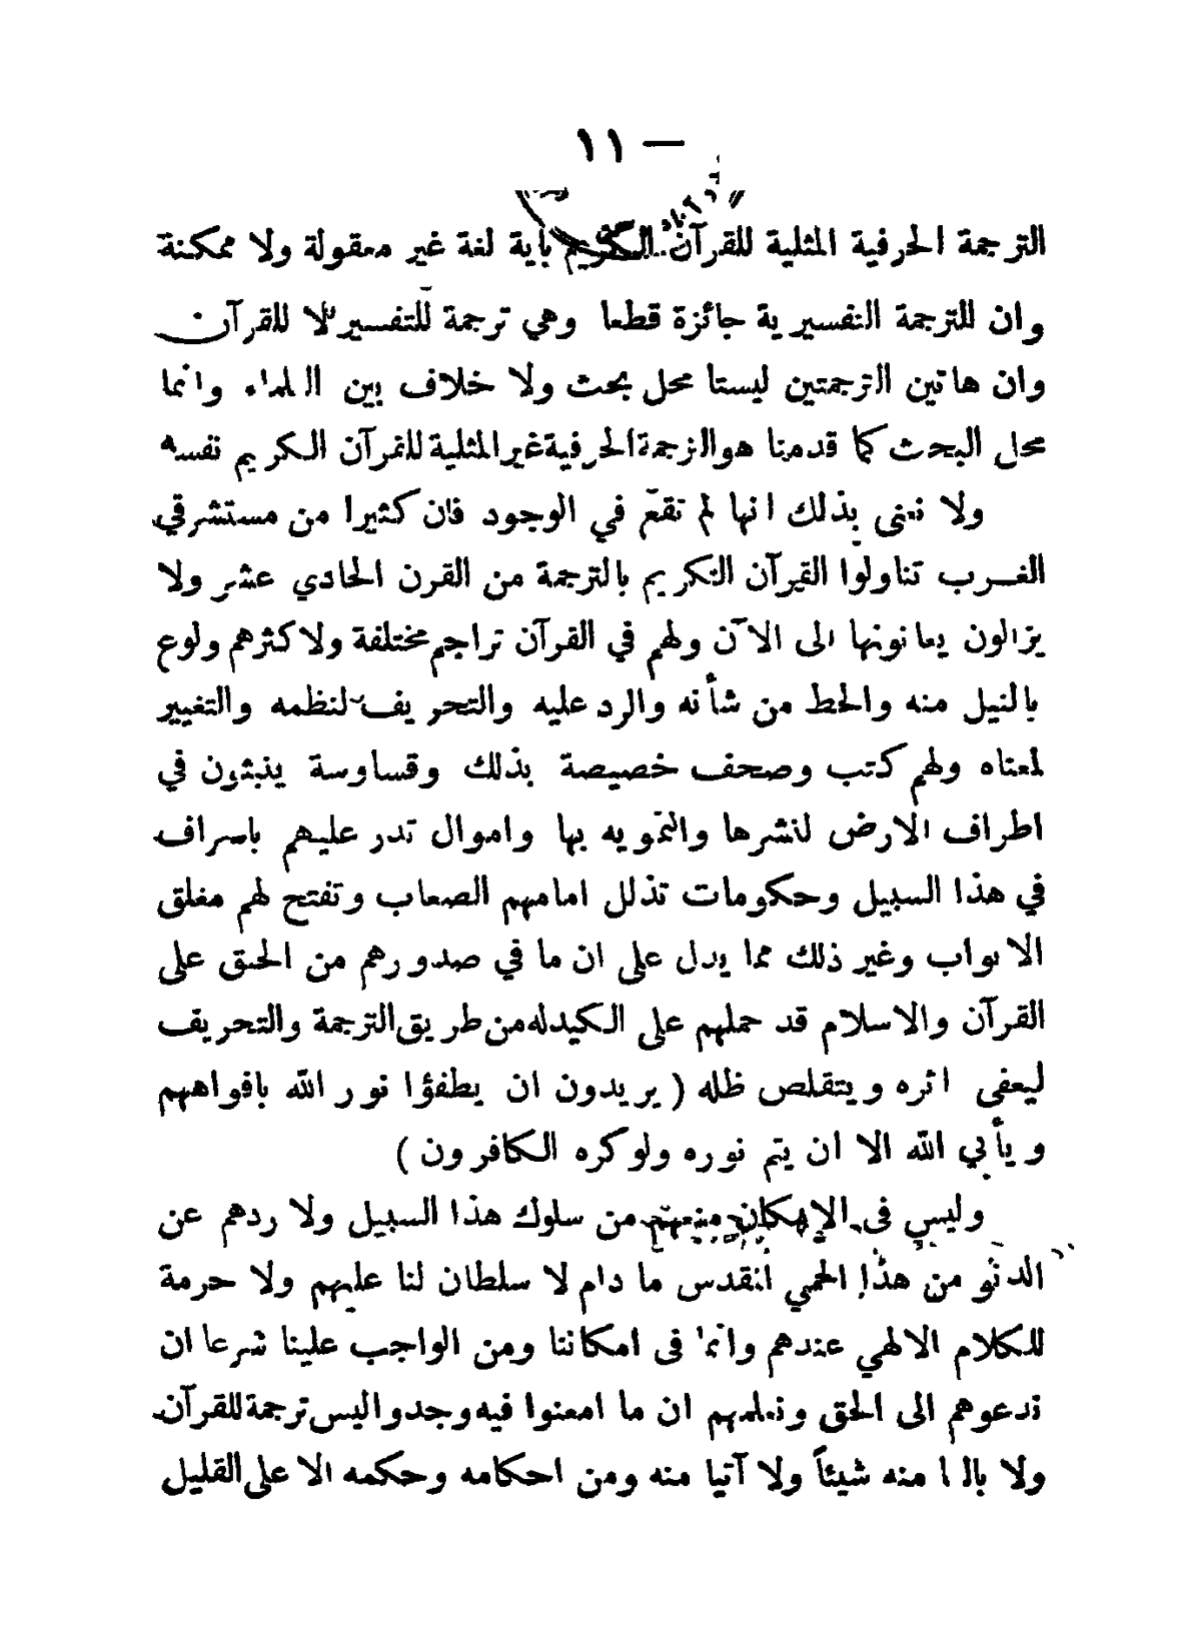 — ١١
الترجمة الحرفية المثلية للقرآن الكريم باية لغة غير معقولة ولا ممكنة
وان للترجمة التفسيرية جائزة قطعا وهي ترجمة للتفسير لا للقرآن
وان هاتين الترجمتين ليستا محل بحث ولا خلاف بين العلماء وانما
محل البحث كما قدمنا هو الترجمة الحرفية غير المثلية للقرآن الكريم نفسه
ولا نعني بذلك انها لم تقع في الوجود فان كثيرا من مستشرقي
الغرب تناولوا القرآن الكريم بالترجمة من القرن الحادي عشر ولا
يزالون يعانونها الى الآن ولهم في القرآن تراجم مختلفة ولاكثرهم ولوع
بالنيل منه والحط من شأنه والرد عليه والتحريف لنظمه والتغيير
لمعناه ولهم كتب وصحف خصيصة بذلك وقساوسة ينبثون في
اطراف الارض لنشرها والتمويه بها واموال تدر عليهم باسراف
في هذا السبيل وحكومات تذلل امامهم الصعاب وتفتح لهم مغلق
الابواب وغير ذلك مما يدل على ان ما في صدورهم من الحنق على
القرآن والاسلام قد حملهم على الكيد له من طريق الترجمة والتحريف
ليعفى اثره ويتقلص ظله ( يريدون ان يطفؤا نور الله بافواههم
ويأبي الله الا ان يتم نوره ولو كره الكافرون )
وليس فى الإمكان منعهم من سلوك هذا السبيل ولا ردهم عن
الدنو من هذا الحمي المقدس ما دام لا سلطان لنا عليهم ولا حرمة
للكلام الالهي عندهم وانما فى امكاننا ومن الواجب علينا شرعا ان
ندعوهم الى الحق ونعلمهم ان ما امعنوا فيه وجدوا ليس ترجمة للقرآن
ولا بالغا منه شيئاً ولا آتيا منه ومن احكامه وحكمه الا على القليل